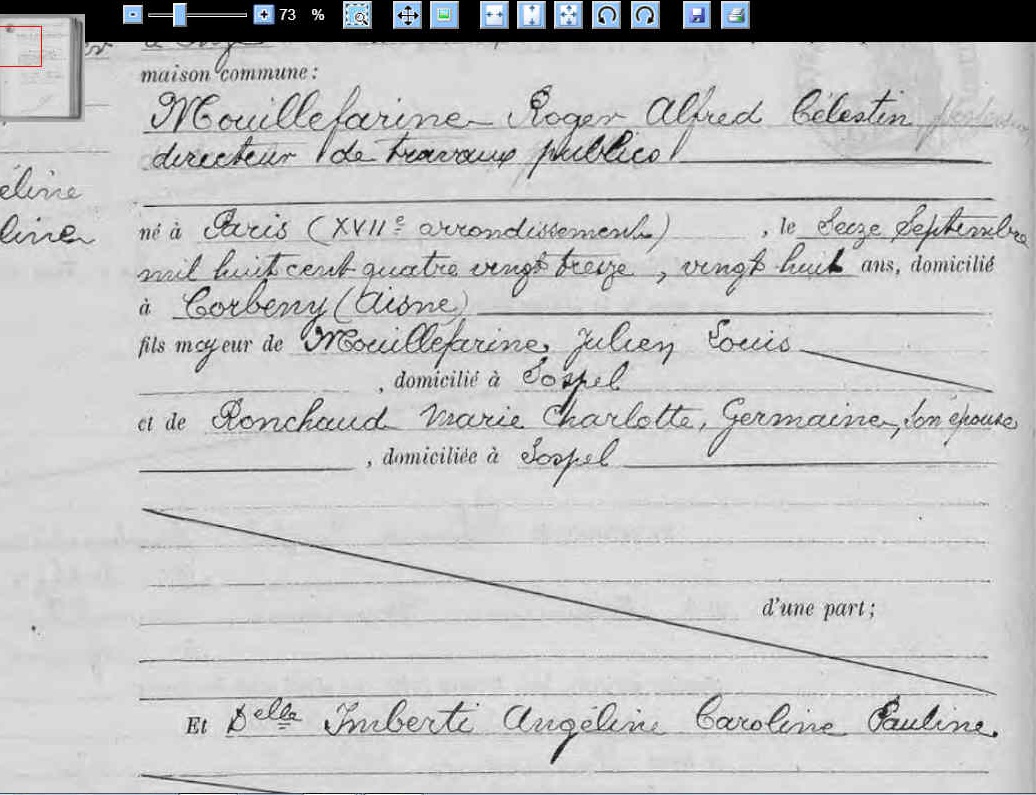 73 %
maison commune :
Mouillefarine Roger Alfred Célestin
directeur de travaux publics
éline
line
né à Paris (XVIIe arrondissement) , le Seize Septembre
mil huit cent quatre vingt treize , vingt huit ans, domicilié
à Corbeny (Aisne)
fils majeur de Mouillefarine, Julien Louis
, domicilié à Sospel
et de Ronchaud Marie Charlotte, Germaine, son épouse
, domiciliée à Sospel
d'une part ;
Et Delle Imberti Angéline Caroline Pauline